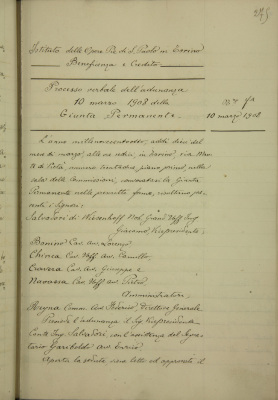 275
Istituto delle Opere Pie di S. Paolo in Torino
Beneficenza e Credito
Processo verbale dell'adunanza
10 marzo 1908 della
Giunta Permanente
10 marzo 1908
L'anno millenovecentootto, addì dieci del
mese di marzo, alle ore sedici, in Torino, via Mon
te di Pietà, numero trentadue, piano primo, nella
sala delle Commissioni, convocatasi la Giunta
Permanente nelle prescritte forme, risultano pre
senti i Signori:
Salvadori di Wiesenhoff Nob. Grand'Uff. Ing.
Giacomo, Vicepresidente;
Bonino Cav. Avv. Lorenzo
Chiesa Cav. Uff. Avv. Camillo;
Cravera Cav. Avv. Giuseppe e
Navassa Cav. Uff. Avv. Pietro
Amministratori.
Comm. Avv. Direttore Generale
Presiede l'adunanza il Sig. Vicepresidente
Conte Ing. Salvadori, con l'assistenza del Segre
tario Garibaldi Avv. Enrico.
Aperta la seduta, sono letti ed approvati il